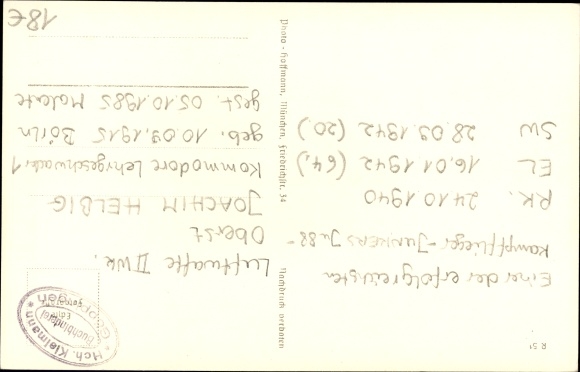 Einer der erfolgreichsten
Kampfflieger - JUNKERS Ju 88 -
RK. 24.10.1940
EL 16.01.1942 (64.)
SW 28.09.1942 (20.)
Luftwaffe II WK.
Oberst
JOACHIM HELBIG
Kommodore Lehrgeschwader 1
geb. 10.09.1915 Börln
gest. 05.10.1985 Malente
18€
Photo-Hoffmann, München, Friedrichstr. 34
Nachdruck verboten
R 51
Hch. Kleimann
Buchbinderei